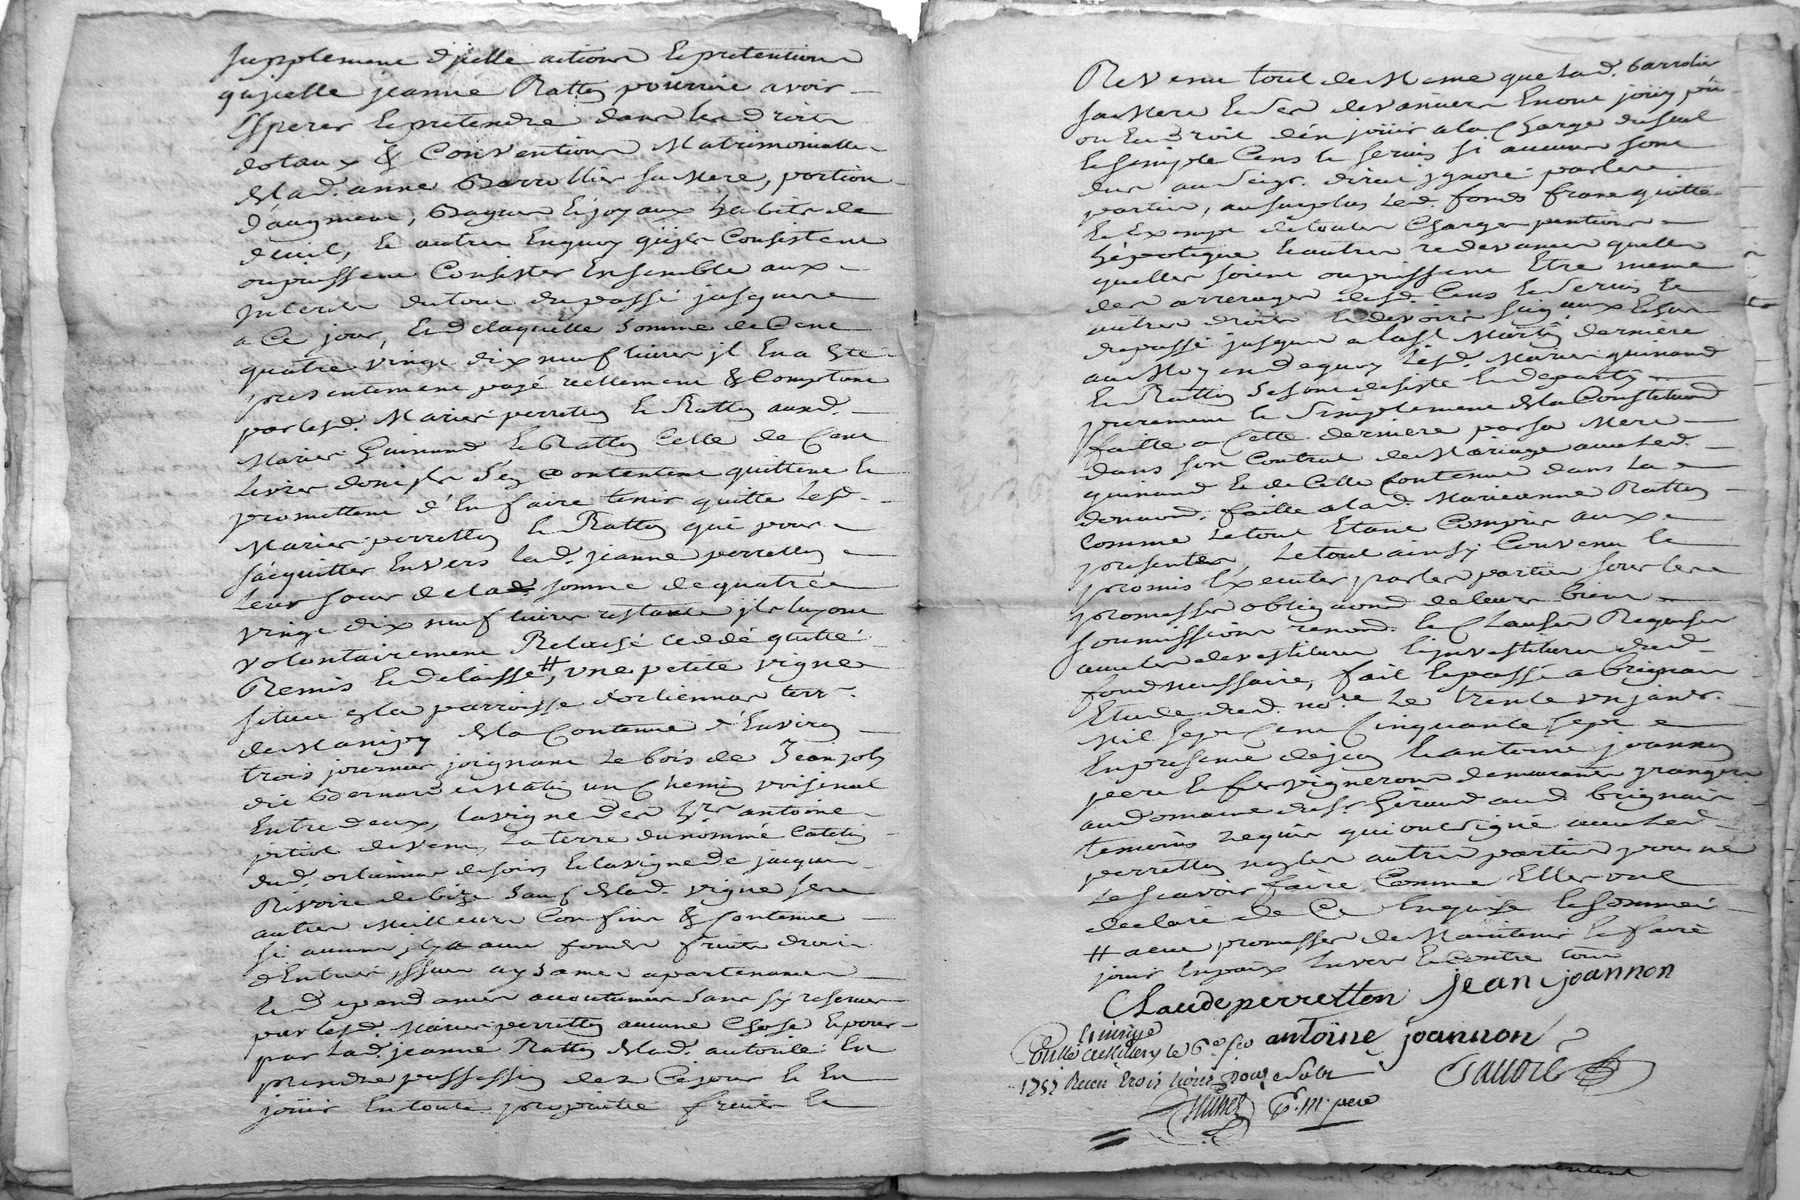 supplement d'jcelle actions & pretentions
qu'jcelle jeanne Ratton pourroit avoir
Esperer & pretendre dans les droits
dotaux & Conventions Matrimonialles
de lad. anne Barrollier sa Mere, portion
d'augment, Bagues & joyaux habits de
deuil, & autres Enquoy qu'jls Consistent
ou puissent Consister Ensemble aux
Interets du tout du passé jusques
a Ce jour, & de laquelle somme de Cent
quatre vingt dix neuf livres jl En a Eté
presentement payé reellement & Comptant
par lesd. Mariés perretton & Ratton auxd.
Mariés Guinand & Ratton Celle de Cent
Livres dont jls s'en Contentent quittent &
promettent d'En faire tenir quitte lesd.
Mariés perretton & Ratton qui pour
s'acquitter Envers lad. jeanne perretton
leur soeur de lad. somme de quatre
vingt dix neuf livres restante jls luy ont
volontairement Relaché ceddé quitté
Remis & delaissé #, une petite vigne
située en la parroisse d'orliennas terr.
de Manigny de la Contenue d'Environ
trois journaux joignant le bois de Jean joly
dit Bernard de Matin un Chemin voisinal
Entre deux, la vigne des hrs antoine
pitiot de vent, La terre du nommé Catelin
dud. orlienas de soir & la vigne de jacques
Rivoire de bize sauf de lad. vigne ses
autres Meilleurs Confins & Contenue
si aucuns jl y a avec fonds fruits droits
d'Entrées jssues aysances apartenances
& dependances accoutumées sans s'y reserver
par lesd. Mariés perretton aucune Chose & pour
par lad. jeanne Ratton de lad. autorité En
prendre possession des Ce jour & En
jouir En toute proprieté fruits &
Revenu tout de Meme que lad. Barrolier
sa Mere & ses devanciers En ont jouy pû
ou Eu droit d'en jouir a la Charge du seul
& simple Cens & servis si aucuns sont
dus au seigr. direct jgnoré par les
parties, au surplus led. fonds franc quitte
& Exempt de toutes Charges pentions
hipotiques & autres redevances quelles
quelles soient ou puissent Etre meme
des arrerages desd. Cens & servis &
autres droits & devoirs seig.aux & ce
du passé jusques a la st Martin derniere
au Moyen de quoy lesd. Mariés guinand
& Ratton se sont desisté & departy
purement & simplement de la Constitution
faitte a Cette derniere par sa Mere
dans son Contrat de Mariage avec led.
guinand & de Celle Contenue dans la
donaon. faitte a lad. Marieanne Ratton
Comme le tout Etant Compris aux
presentes. Le tout ainsy Convenu &
promis Executer par les parties sous leurs
promesses obligaons de leurs biens
soumissions renonc. & Clauses Requises
avec les devestitures & jnvestitures dud.
fond necessaire, fait & passé a brignais
Etude dud. no.re Le trente un janv.
Mil sept Cent Cinquante sept
En presence de jean & antoine joannon
pere & fils vignerons demeurants grangers
au domaine du sr. Giraud aud. brignais
temoins requis qui ont signé avec led.
perretton non les autres parties pour ne
le scavoir faire Comme Elles ont
declaré de Ce Enquises & sommées
# avec promesse de Maintenir & faire
jouir En paix Envers & contre tous
Claude perretton jean joannon
antoine joannon
1757 Recu trois livres
p.m. pere